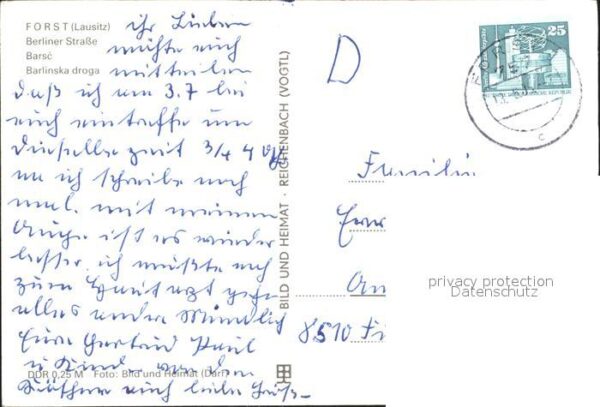 FORST (Lausitz)
Berliner Straße
Barsć
Barlinska droga
ihr Lieben
möchte euch
mitteilen
daß ich am 3.7 bei
euch eintreffe um
dieselbe zeit 3/4 4 Uhr
na ich schreibe noch
mal. mit meinen
Auge ist es wieder
besser, ich müßte noch
zum Hautarzt
alles andere Mündlich
Eure Gertrud Paul
u Kind. von den
euch liebe Grüß-
DDR 0,25 M Foto: Bild und Heimat (Darr)
BILD UND HEIMAT · REICHENBACH (VOGTL)
D
25
DEUTSCHE DEMOKRATISCHE REPUBLIK
c
Familie
8510 Fü
privacy protection
Datenschutz